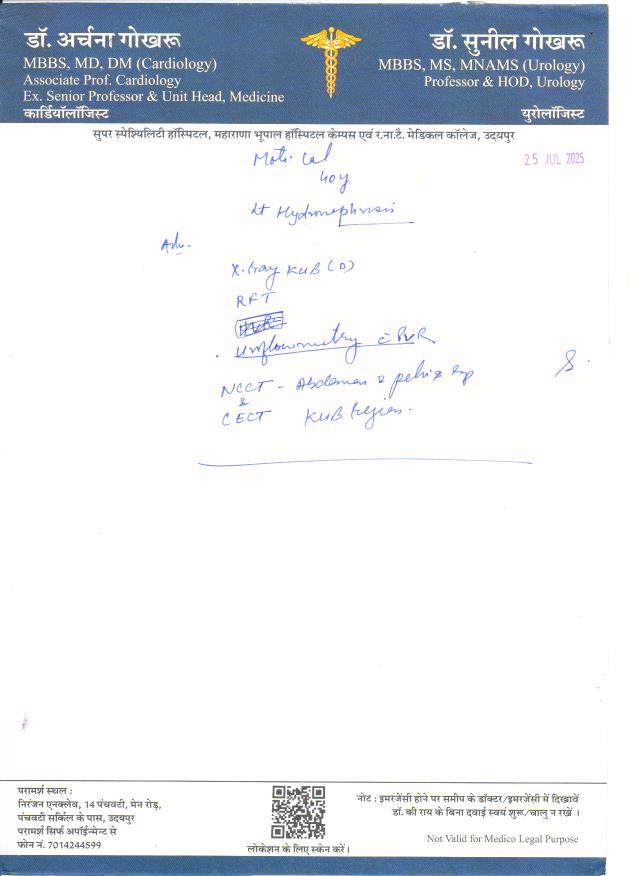 डॉ. अर्चना गोखरू
MBBS, MD, DM (Cardiology)
Associate Prof. Cardiology
Ex. Senior Professor & Unit Head, Medicine
कार्डियॉलॉजिस्ट
डॉ. सुनील गोखरू
MBBS, MS, MNAMS (Urology)
Professor & HOD, Urology
युरोलॉजिस्ट
सुपर स्पेश्यिलिटी हॉस्पिटल, महाराणा भूपाल हॉस्पिटल केम्पस एवं र.ना.टै. मेडिकल कॉलेज, उदयपुर
25 JUL 2025
Moti Lal
40y
Lt Hydronephrosis
Adv.
X-tray KUB (D)
RFT
Uroflowmetry c̄ PVR
NCCT - Abdomen & pelvis
&
CECT KUB Region.
परामर्श स्थल :
निरंजन एनक्लेव, 14 पंचवटी, मेन रोड़,
पंचवटी सर्किल के पास, उदयपुर
परामर्श सिर्फ अपॉईन्मेन्ट से
फोन नं. 7014244599
लोकेशन के लिए स्केन करें।
नोट : इमरजेंसी होने पर समीप के डॉक्टर/इमरजेंसी में दिखावें
डॉ. की राय के बिना दवाई स्वयं शुरू/चालु न रखें ।
Not Valid for Medico Legal Purpose